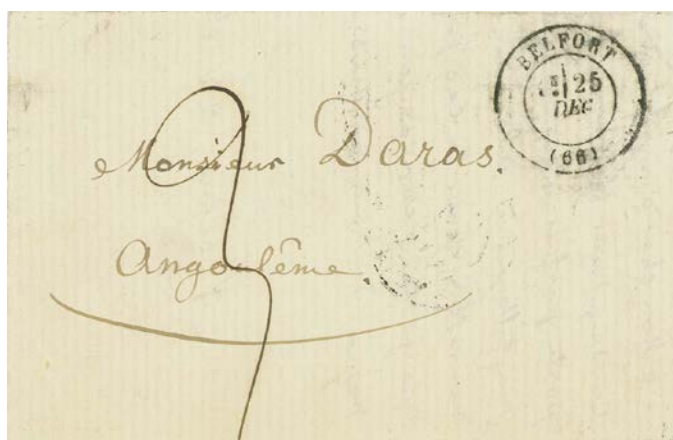 BELFORT
25
DEC
(66)
Monsieur Daras.
Angoulême.